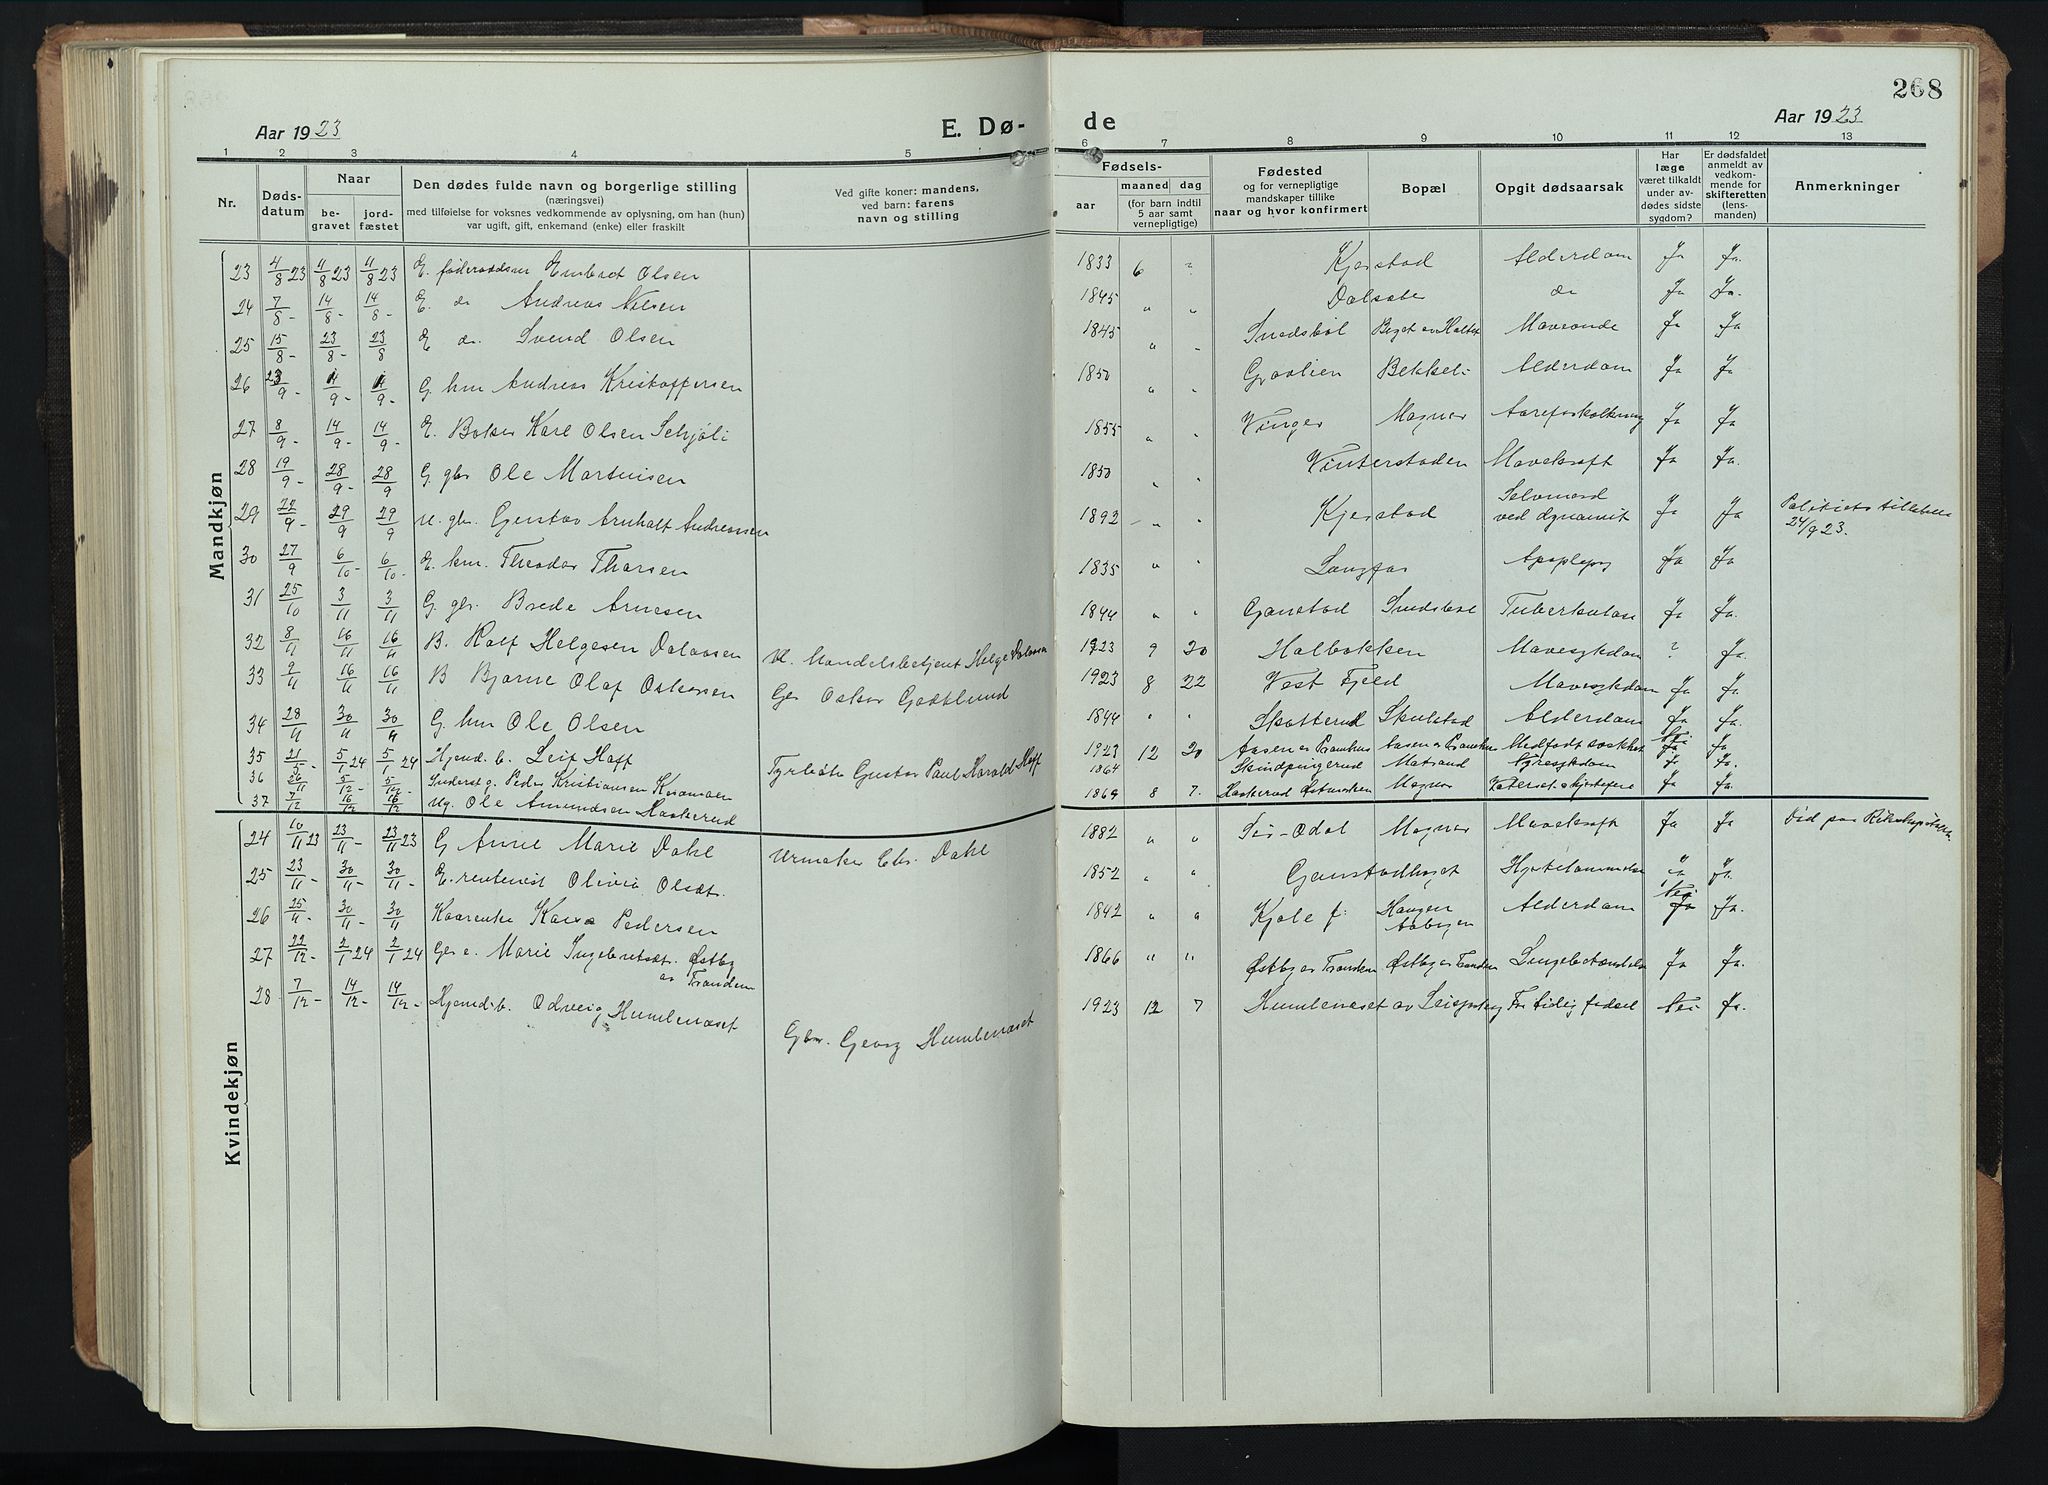 268
Aar 1923
E. Dø-
de
Aar 1923
1 2 3 4 5 6 7 8 9 10 11 12 13
Nr.
Døds-
datum
Naar
be-
gravet
jord-
fæstet
Den dødes fulde navn og borgerlige stilling
(næringsvei)
med tilføielse for voksnes vedkommende av oplysning, om han (hun)
var ugift, gift, enkemand (enke) eller fraskilt
Ved gifte koner: mandens,
ved barn: farens
navn og stilling
Fødsels-
aar
maaned dag
(for barn indtil
5 aar samt
vernepligtige)
Fødested
og for vernepligtige
mandskaper tillike
naar og hvor konfirmert
Bopæl
Opgit dødsaarsak
Har
læge
været tilkaldt
under av-
dødes sidste
sygdom?
Er dødsfaldet
anmeldt av
vedkom-
mende for
skifteretten
(lens-
manden)
Anmerkninger
Mandkjøn
23 4/8 23 11/8 23 11/8 23 E. føderaadsm Embret Olsen 1833 6 " Kjerstad Alderdom Ja Ja.
24 7/8 - 14/8 - 14/8 - E. do Andreas Nilsen 1845 " " Dalsæter do Ja Ja.
25 15/8 - 23/8 - 23/8 E do. Svend Olsen 1845 " " Snedsbøl Maveonde Ja Ja
26 /9 - /9 - /9 - G. hm Andreas Kristoffersen 1850 " " Graalien Bekkeli Alderdom Ja Ja
27 8/9 - 14/9 - 14/9 - E. Baker Karl Olsen Schjøli 1855 " " Vinger Magnor Aareforkalkning Ja Ja
28 19/9 - 28/9 - 28/9 G. gbr Ole Martinsen 1850 " " Vinterstaden Mavekræft Ja Ja.
29 22/9 - 29/9 29/9 U. gbr. Gustav Arnholt Andreassen 1892 " " Kjerstad Selvmord
ved dynamit Ja Ja Politiets
24/9 23.
30 27/9 6/10 - 6/10 - E. hm. Theodor Thorsen 1835 " " Langfos Apoplexi Ja Ja
31 25/10 3/11 3/11 G. gbr. Brede Arnesen 1844 " " Ganstad Snedsbøl Tuberkulose Ja Ja.
32 8/11 16/11 16/11 B. Rolf Helgesen Dalaasen U. Handelsbetjent Helge Dalaasen 1923 9 20 Holbækken Mavesygdom ? Ja.
33 9/11 16/11 16/11 B Bjarne Olaf Oskarsen Gbr Oskar Godtlund 1923 8 22 Vest Fjeld Mavesygdom Ja Ja
34 28/11 30/11 30/11 G. hm Ole Olsen 1844 " " Skotterud Skulstad Alderdom Ja Ja.
35 5/1 24 5/1 24 Hjemd. b. Leif Hoff Gustav Paul Harald Hoff 1923 12 20 Medfødt svakhet Nei Ja
36 26/11 5/12 - 5/12 - Inderst g. Peder Kristiansen 1864 Matrand Ja.
37 7/12 16/12 16/12 Ug. Ole Amundsen Haakerud 1869 8 7. Magnor Ja Ja.
Kvindekjøn
24 10/11 23 23/11 - 23/11 23 G Anne Marie Dahl Urmaker Chr. Dahl 1882 " " Sør-Odal Magnor Mavekræft Ja Ja Død paa Rikshospitalet
25 23/11 - 30/11 - 30/11 - E. rentenist Olivia Olsdt. 1852 " " Ganstadhaget Hjertelammelse " Ja.
26 25/11 - 30/11 - 30/11 Kaarenke Kari Pedersen 1842 " " Kjole f: Haugen
Aabogen Alderdom Nei
Ja Ja.
27 22/12 - 2/1 24 2/1 24 Gbr e. Marie Ingebretsdt. Østby
av Tranden 1866 " " Østby av Tranden Østby av Tranden Lungebetændelse Ja Ja.
28 7/12 - 14/12 - 14/12 - Hjemd b. Odveig Humlenæset Gbr. Georg Humlenæset 1923 12 7 Humlenæset av For tidlig fødsel Nei Ja.